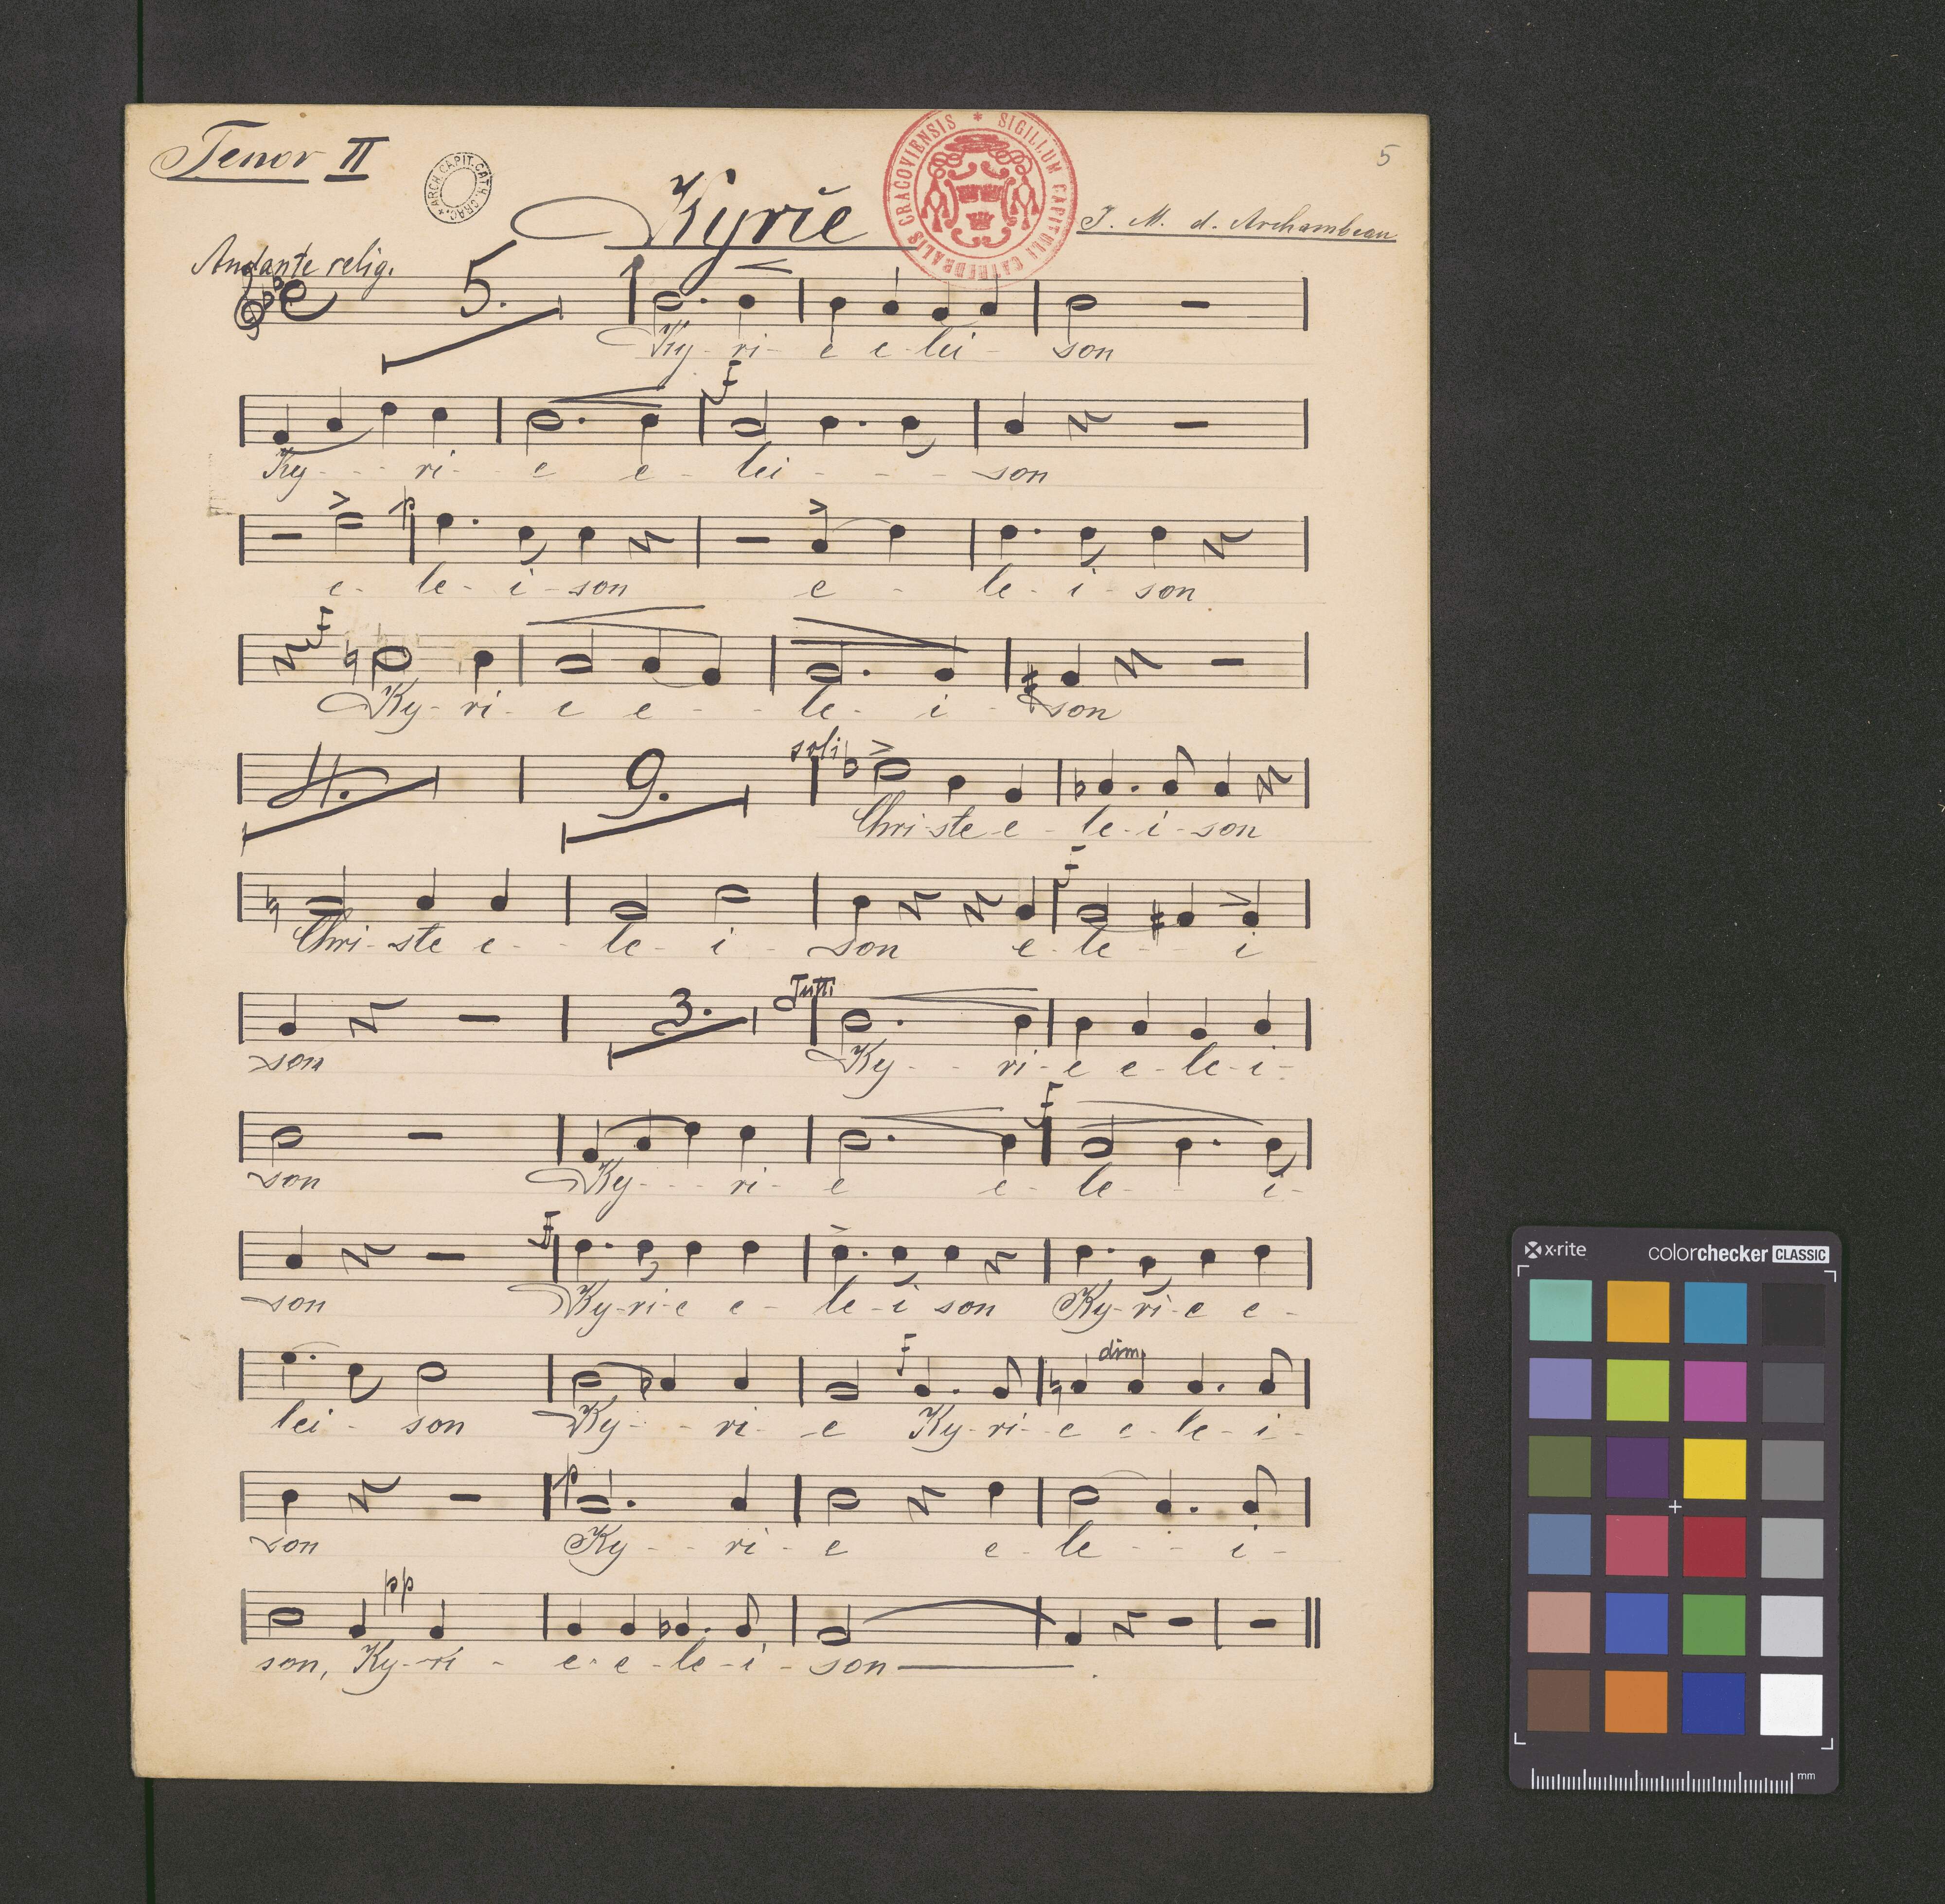 Tenor II
ARCH. CAPIT. CATH. CRAC. *
SIGILLUM CAPITULI CATHEDRALIS CRACOVIENSIS *
5
Kyrie
J. M. d. Archambeau
Andante relig.
5.
Ky - ri - e e - lei - son
f
Ky - - - ri - e e - lei - - - son
p
e - le - i - son e - le - i - son
f
Ky - ri - e e - - - le - i - son
4. 9. soli
Chri - ste e - le - i - son
f
Chri - ste e - - le - i - son e - le - - i
3. Tutti
son Ky - - ri - e e - le - i -
f
son Ky - - - ri - e e - le - - i -
ff
son Ky - ri - e e - le - i son Ky - ri - e e -
f dim.
lei - son Ky - - - ri - e Ky - ri - e e - le - i -
p
son Ky - - ri - e e - le - - i -
pp
son, Ky - ri - e - e - le - i - son .
x·rite
colorchecker CLASSIC
mm